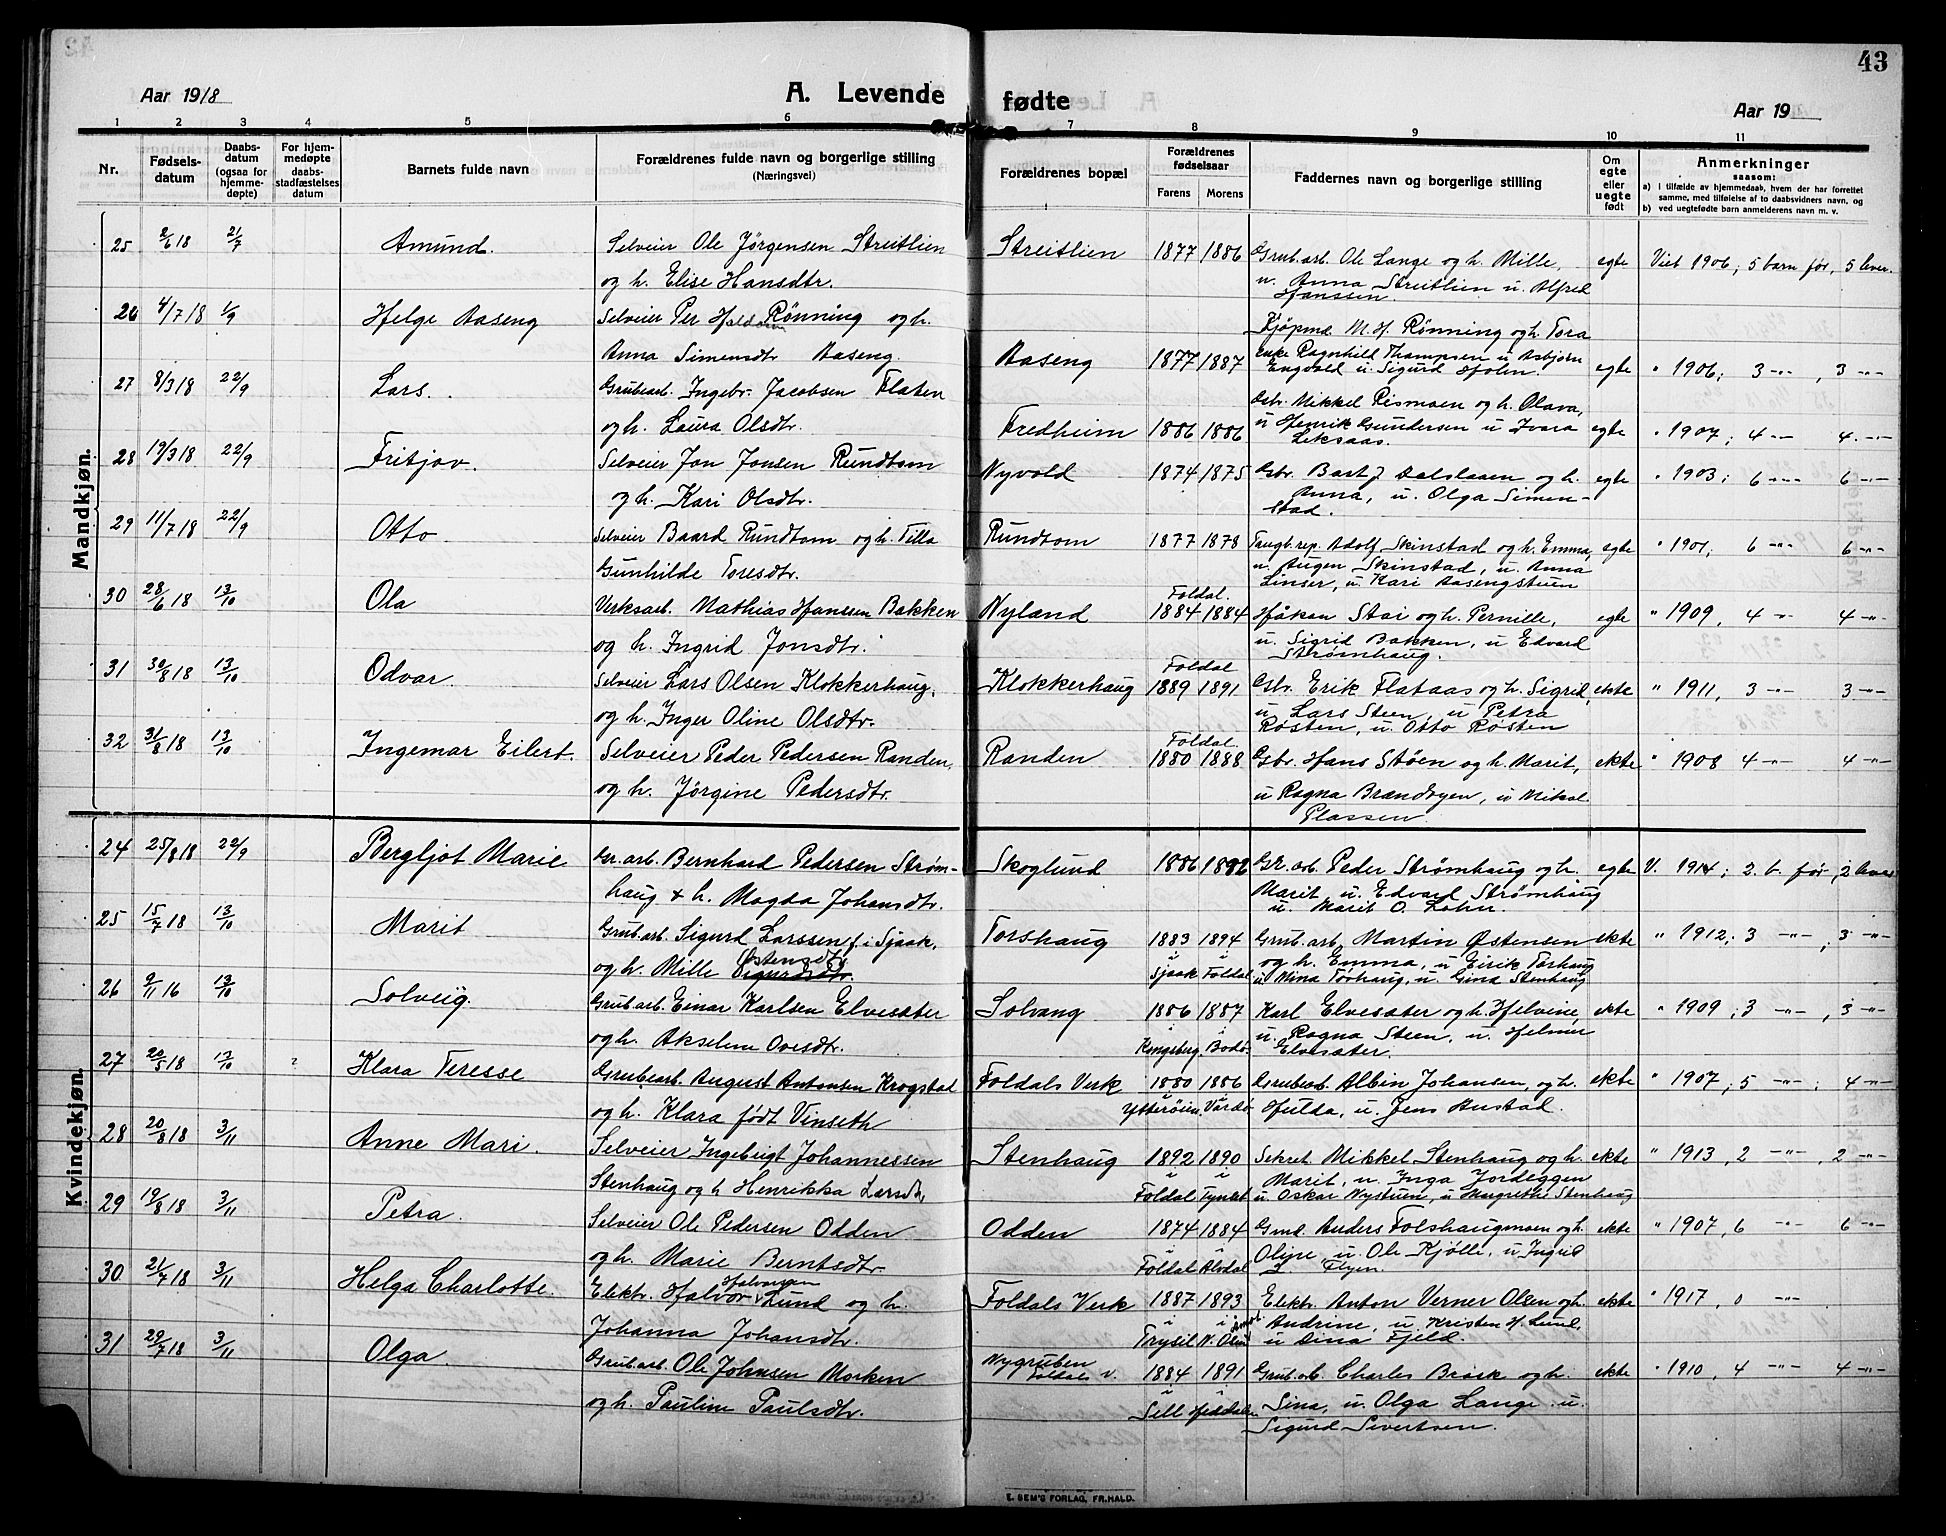 43
Aar 1918
A. Levende fødte
Aar 19
1 2 3 4 5 6 7 8 9 10 11
Nr.
Fødsels-
datum
Daabs-
datum
(ogsaa for
hjemme-
døpte)
For hjem-
medøpte
daabs-
stadfæstelses
datum
Barnets fulde navn
Forældrenes fulde navn og borgerlige stilling
(Næringsvei)
Forældrenes bopæl
Forældrenes
fødselsaar
Farens Morens
Faddernes navn og borgerlige stilling
Om
egte
eller
uegte
født
Anmerkninger
saasom:
a) i tilfælde av hjemmedaab, hvem der har forrettet
samme, med tilføielse af to daabsvidners navn, og
b) ved uegtefødte barn anmelderens navn m. v.
Mandkjøn.
25 2/6 18 21/7 Amund. Selveier Ole Jörgensen Streitlien Streitlien 1877 1886 Grub.arb. Ole Lange og h. Mille, egte Viet 1906; 5 barn før, 5 lever.
og h. Elise Hansdtr. u. Anna Streitlien u. Alfred
Hanssen.
26 4/7 18 1/9 Helge Aaseng Selveier Per Rönning og h. Kjöpmd. M. H. Rönning og h. Tora
Anna Simensdtr Aaseng. Aaseng 1877 1887 enke Ragnhild Thampsen u Asbjørn egte " 1906; 3 -"- , 3 -"-
Engvold u. Sigurd Holen.
27 8/3 18 22/9 Lars. Grubearb. Ingebr. Jacobsen Flaten Gbr. Mikkel Rismoen og h. Olava,
og h. Laura Olsdtr. Fredheim 1886 1886 u Henrik Gundersen u Ivara egte " 1907; 4 -"- 4 -"-
Leksaas.
28 19/3 18 22/9 Fritjov. Selveier Jon Jonsen Rundtom Nyvold 1874 1875 Gbr. Bart J Dalslaaen og h. egte " 1903; 6 -"- 6 -"-
og h. Kari Olsdtr. Anna, u. Olga Simen-
stad.
29 11/7 18 22/9 Otto Selveier Baard Rundtom og h. Tilla Rundtom 1877 1878 Taugb.rep. Adolf Skinstad og h. Emma, egte " 1901; 6 -"- 6 -"-
Gunhilde Toresdtr. u. Augen Skinstad, u. Anna
Linser, u. Kari Aasengstuen
30 28/6 18 13/10 Ola Verksarb. Mathias Hanssen Bakken Nyland Foldal. 1884 1884 Håkon Stai og h. Pernille, egte " 1909, 4 -"- 4 -"-
og h. Ingrid Jonsdtr. u. Sigrid Bakken, u Edvard
Strømhaug.
31 30/8 18 13/10 Odvar. Selveier Lars Olsen Klokkerhaug, Klokkerhaug Foldal 1889 1891 Gbr. Erik Flataas og h. Sigrid, ekte " 1911, 3 -"- 3 -"-
og h. Inger Oline Olsdtr. u Lars Steen, u Petra
Røsten, u. Otto Røsten
32 31/8 18 13/10 Ingemar Eilert. Selveier Peder Pedersen Randen, Randen Foldal. 1880 1888 Gbr. Hans Støen og h. Marit, ekte " 1908 4 -"- 4 -"-
og h. Jørgine Pedersdtr. u Ragna Brændvyen, u Mikal
Plassen
Kvindekjøn.
24 25/8 18 22/9 Bergljot Marie Gr. arb. Bernhard Pedersen Strøm- Skoglund 1886 1892 Gr. arb Peder Strømhaug og h. egte V. 1914; 2 b. før, 2 lever
haug & h. Magda Johansdtr. Marit u. Edvard Strømhaug
u. Marit O. Lohn.
25 15/7 18 13/10 Marit Grub.arb. Sigurd Larssen f. i Sjaak, Torshaug 1883 1894 Grub.arb. Martin Østensen ekte " 1912; 3 -"- ; 3 -"-
og h. Mille Østensdtr. i Sjaak i Foldal og h. Emma, u. Eirik Torhaug
u Mina Torhaug, u. Gina Stenhaug
26 9/11 16 13/10 Solveig. Grub.arb. Einar Karlsen Elvesæter Solvang 1886 1887 Karl Elvesæter og h. Helvine, ekte " 1909; 3 -"- , 3 -"-
og h. Akseline Ovesdtr. i Kongsberg. i Bodø. u. Ragna Steen, u. Helmer
Elvesæter.
27 20/5 18 13/10 Klara Teresse Grubearb. August Antonsen Krogstad Foldals Verk 1880 1886 Grubearb. Albin Johansen, og h. ekte " 1907; 5 -"- ; 4 -"-
og h. Klara født Vinseth Ytterøien. Vardø. Hulda, u. Jens Austad.
28 20/8 18 3/11 Anne Mari. Selveier Ingebrigt Johannessen Stenhaug 1892 1890 Sekret. Mikkel Stenhaug og h. ekte " 1913, 2 -"- , 2 -"-
Stenhaug og h Henrikka Larsdtr i Foldal i Tynset Marit, u. Inga Jordeggen
u Oskar Nystuen, u Margrethe Stenhaug
29 19/8 18 3/11 Petra. Selveier Ole Pedersen Odden Odden 1874 1884 Gmd. Anders Folshaugmoen og h. ekte " 1907, 6 -"- 6 -"-
og h. Marie Berntsdtr. i Foldal i Alvdal Oline u. Ole Kjølli, u Ingrid
Flyen.
30 21/7 18 3/11 Helga Charlotte. Elektr. Halvor Halvorsen Lund og h. Foldals Verk 1887 1893 Elektr. Anton Verner Olsen og h. ekte " 1917, 0 -"-
Johanna Johansdtr. i Trysil i Andrine, u. Kristen H. Lund,
u Dina Fjeld.
31 29/7 18 3/11 Olga. Grub.arb. Ole Johnsen Morken Nygruben Foldals V. 1884 1891 Grub.arb. Charles Brisk og h. ekte " 1910, 4 -"- 4 -"-
og h. Pauline Paulsdtr. i Sell i Heddalen Sina, u. Olga Lange u.
Sigurd Sivertsen.
E. SEM'S FORLAG, FR.HALD.